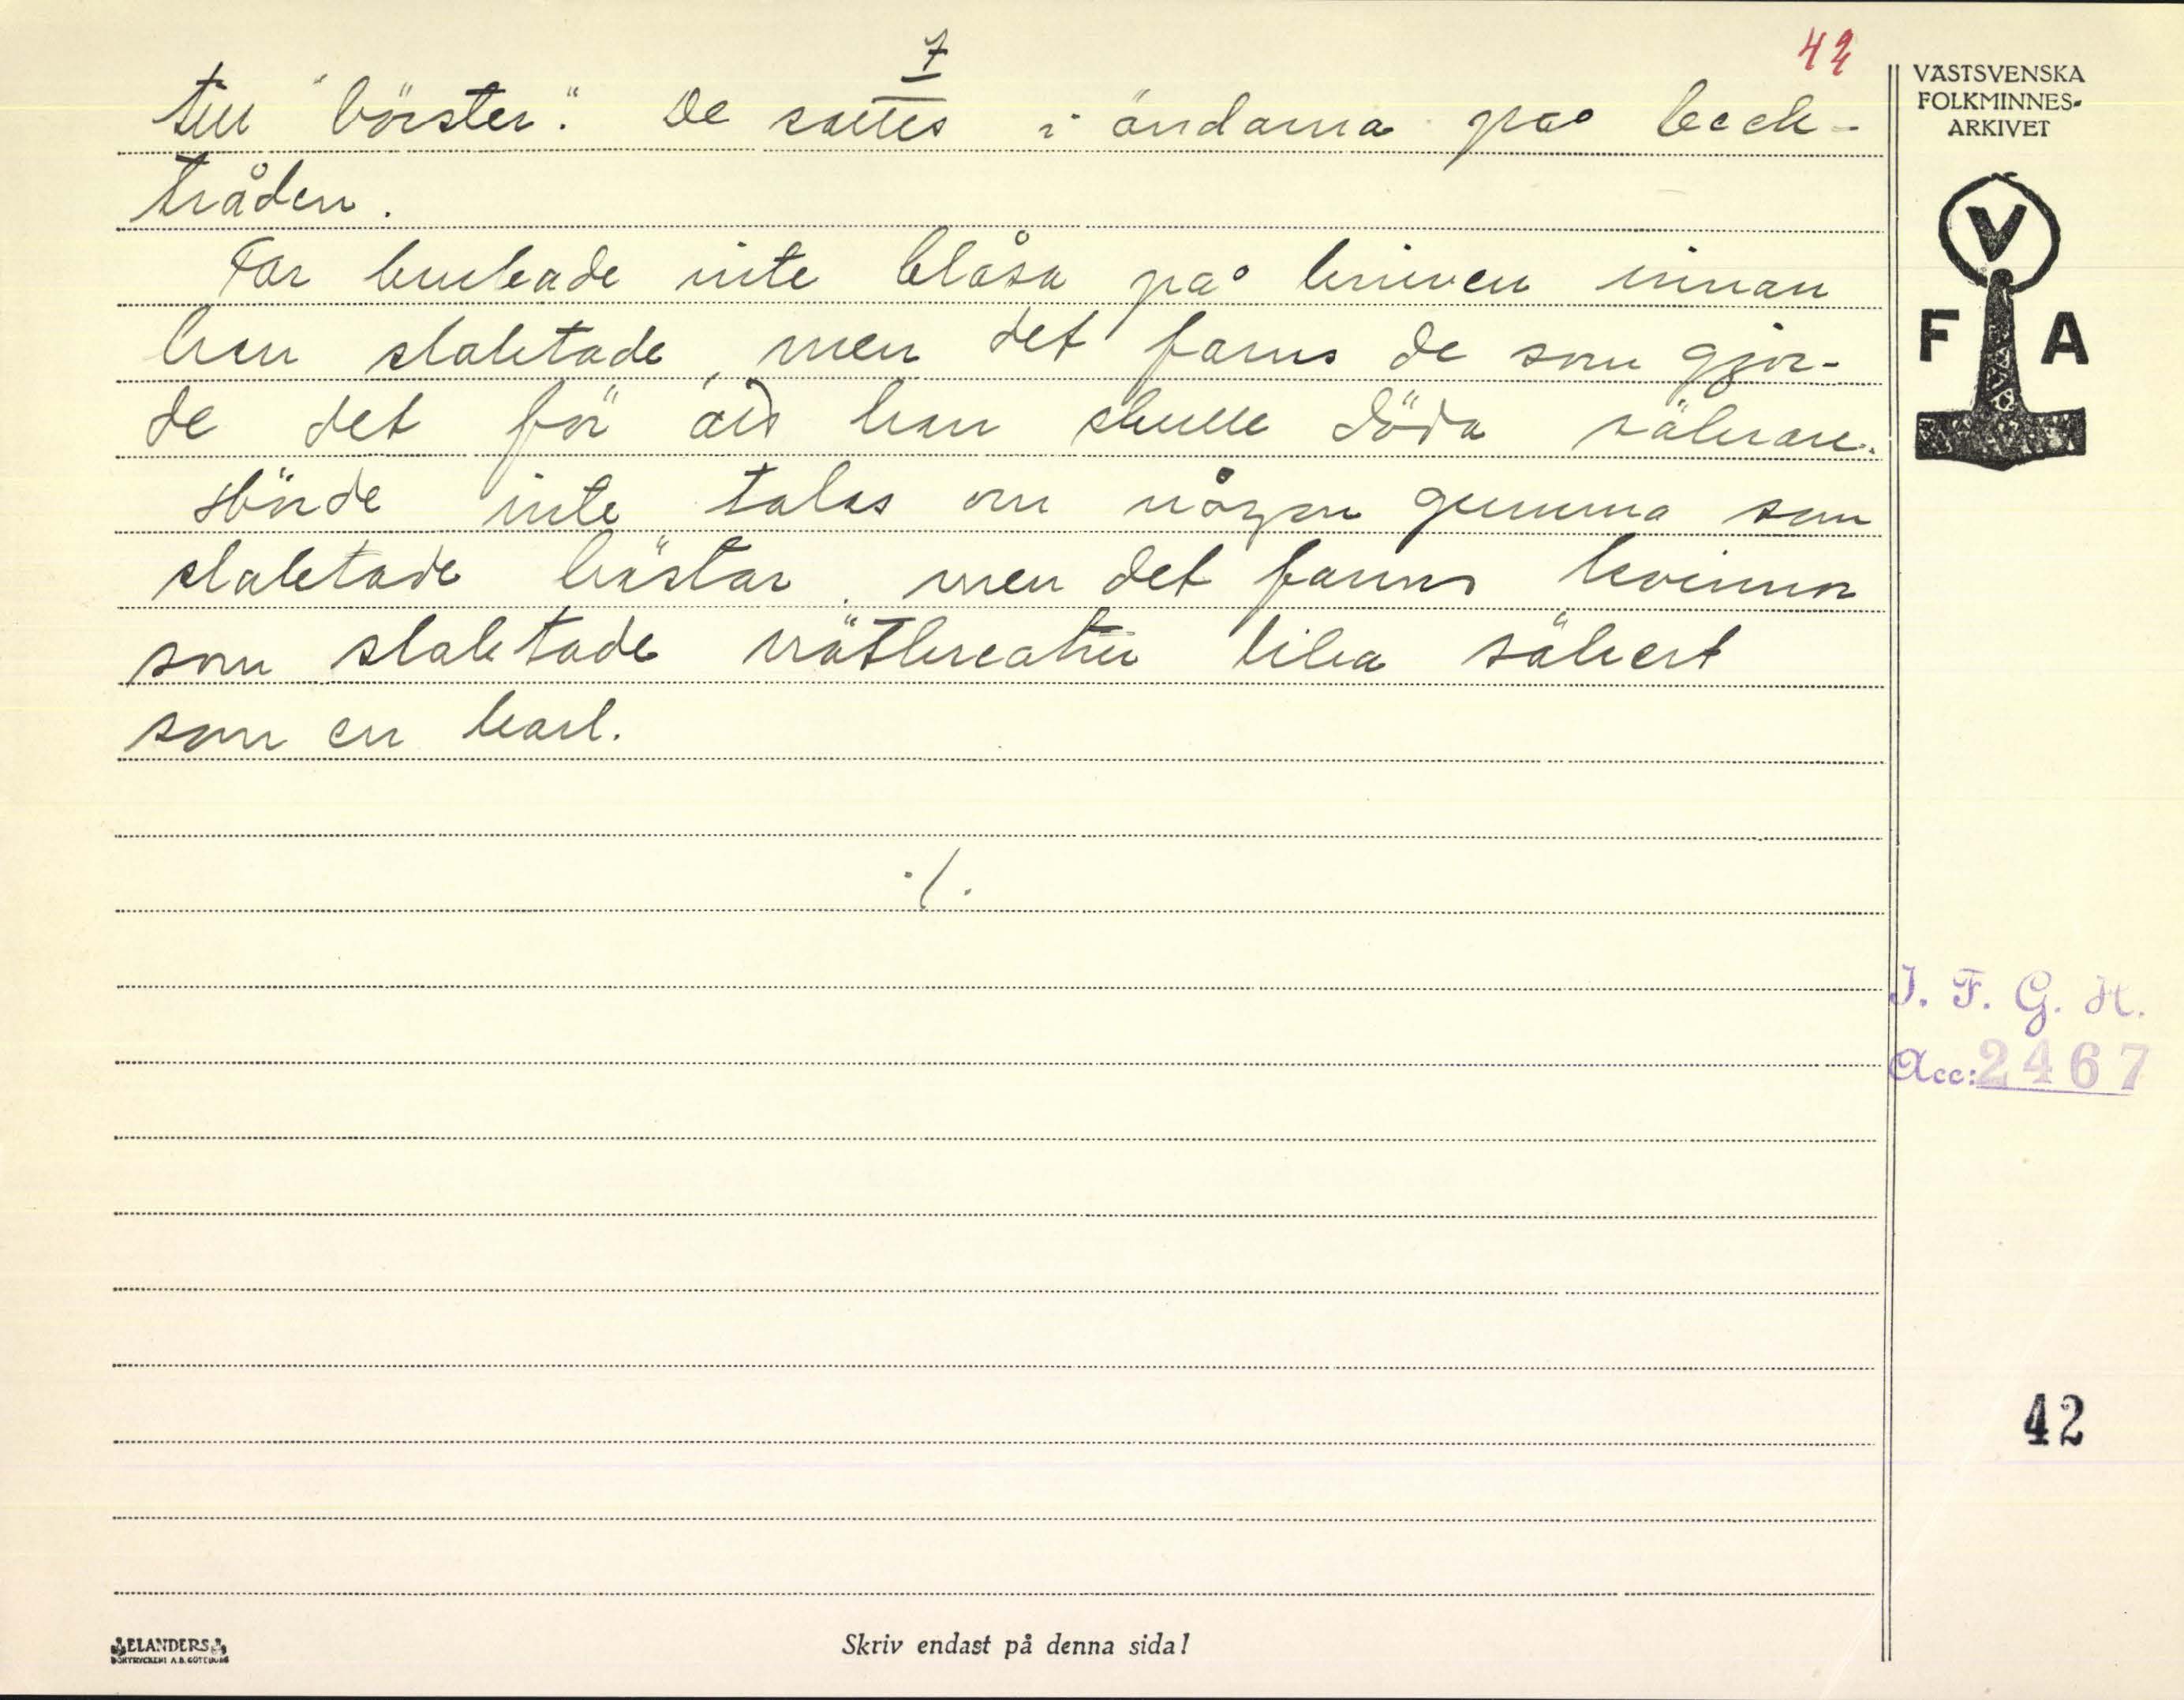 7
42
till "börster". De sattes i ändarna på beck-
tråden.
Far brukade inte blåsa på kniven innan
han slaktade, men det fanns de som gjor-
de det för att han skulle döda säkrare.
Hörde inte talas om någon gumma som
slaktade hästar, men det fanns kvinnor
som slaktade nötkreatur lika säkert
som en karl.
./.
VÄSTSVENSKA
FOLKMINNES-
ARKIVET
V
F A
I. F. G. H.
Acc: 2467
42
ELANDERS
BOKTRYCKERI A.B. GÖTEBORG
Skriv endast på denna sida!